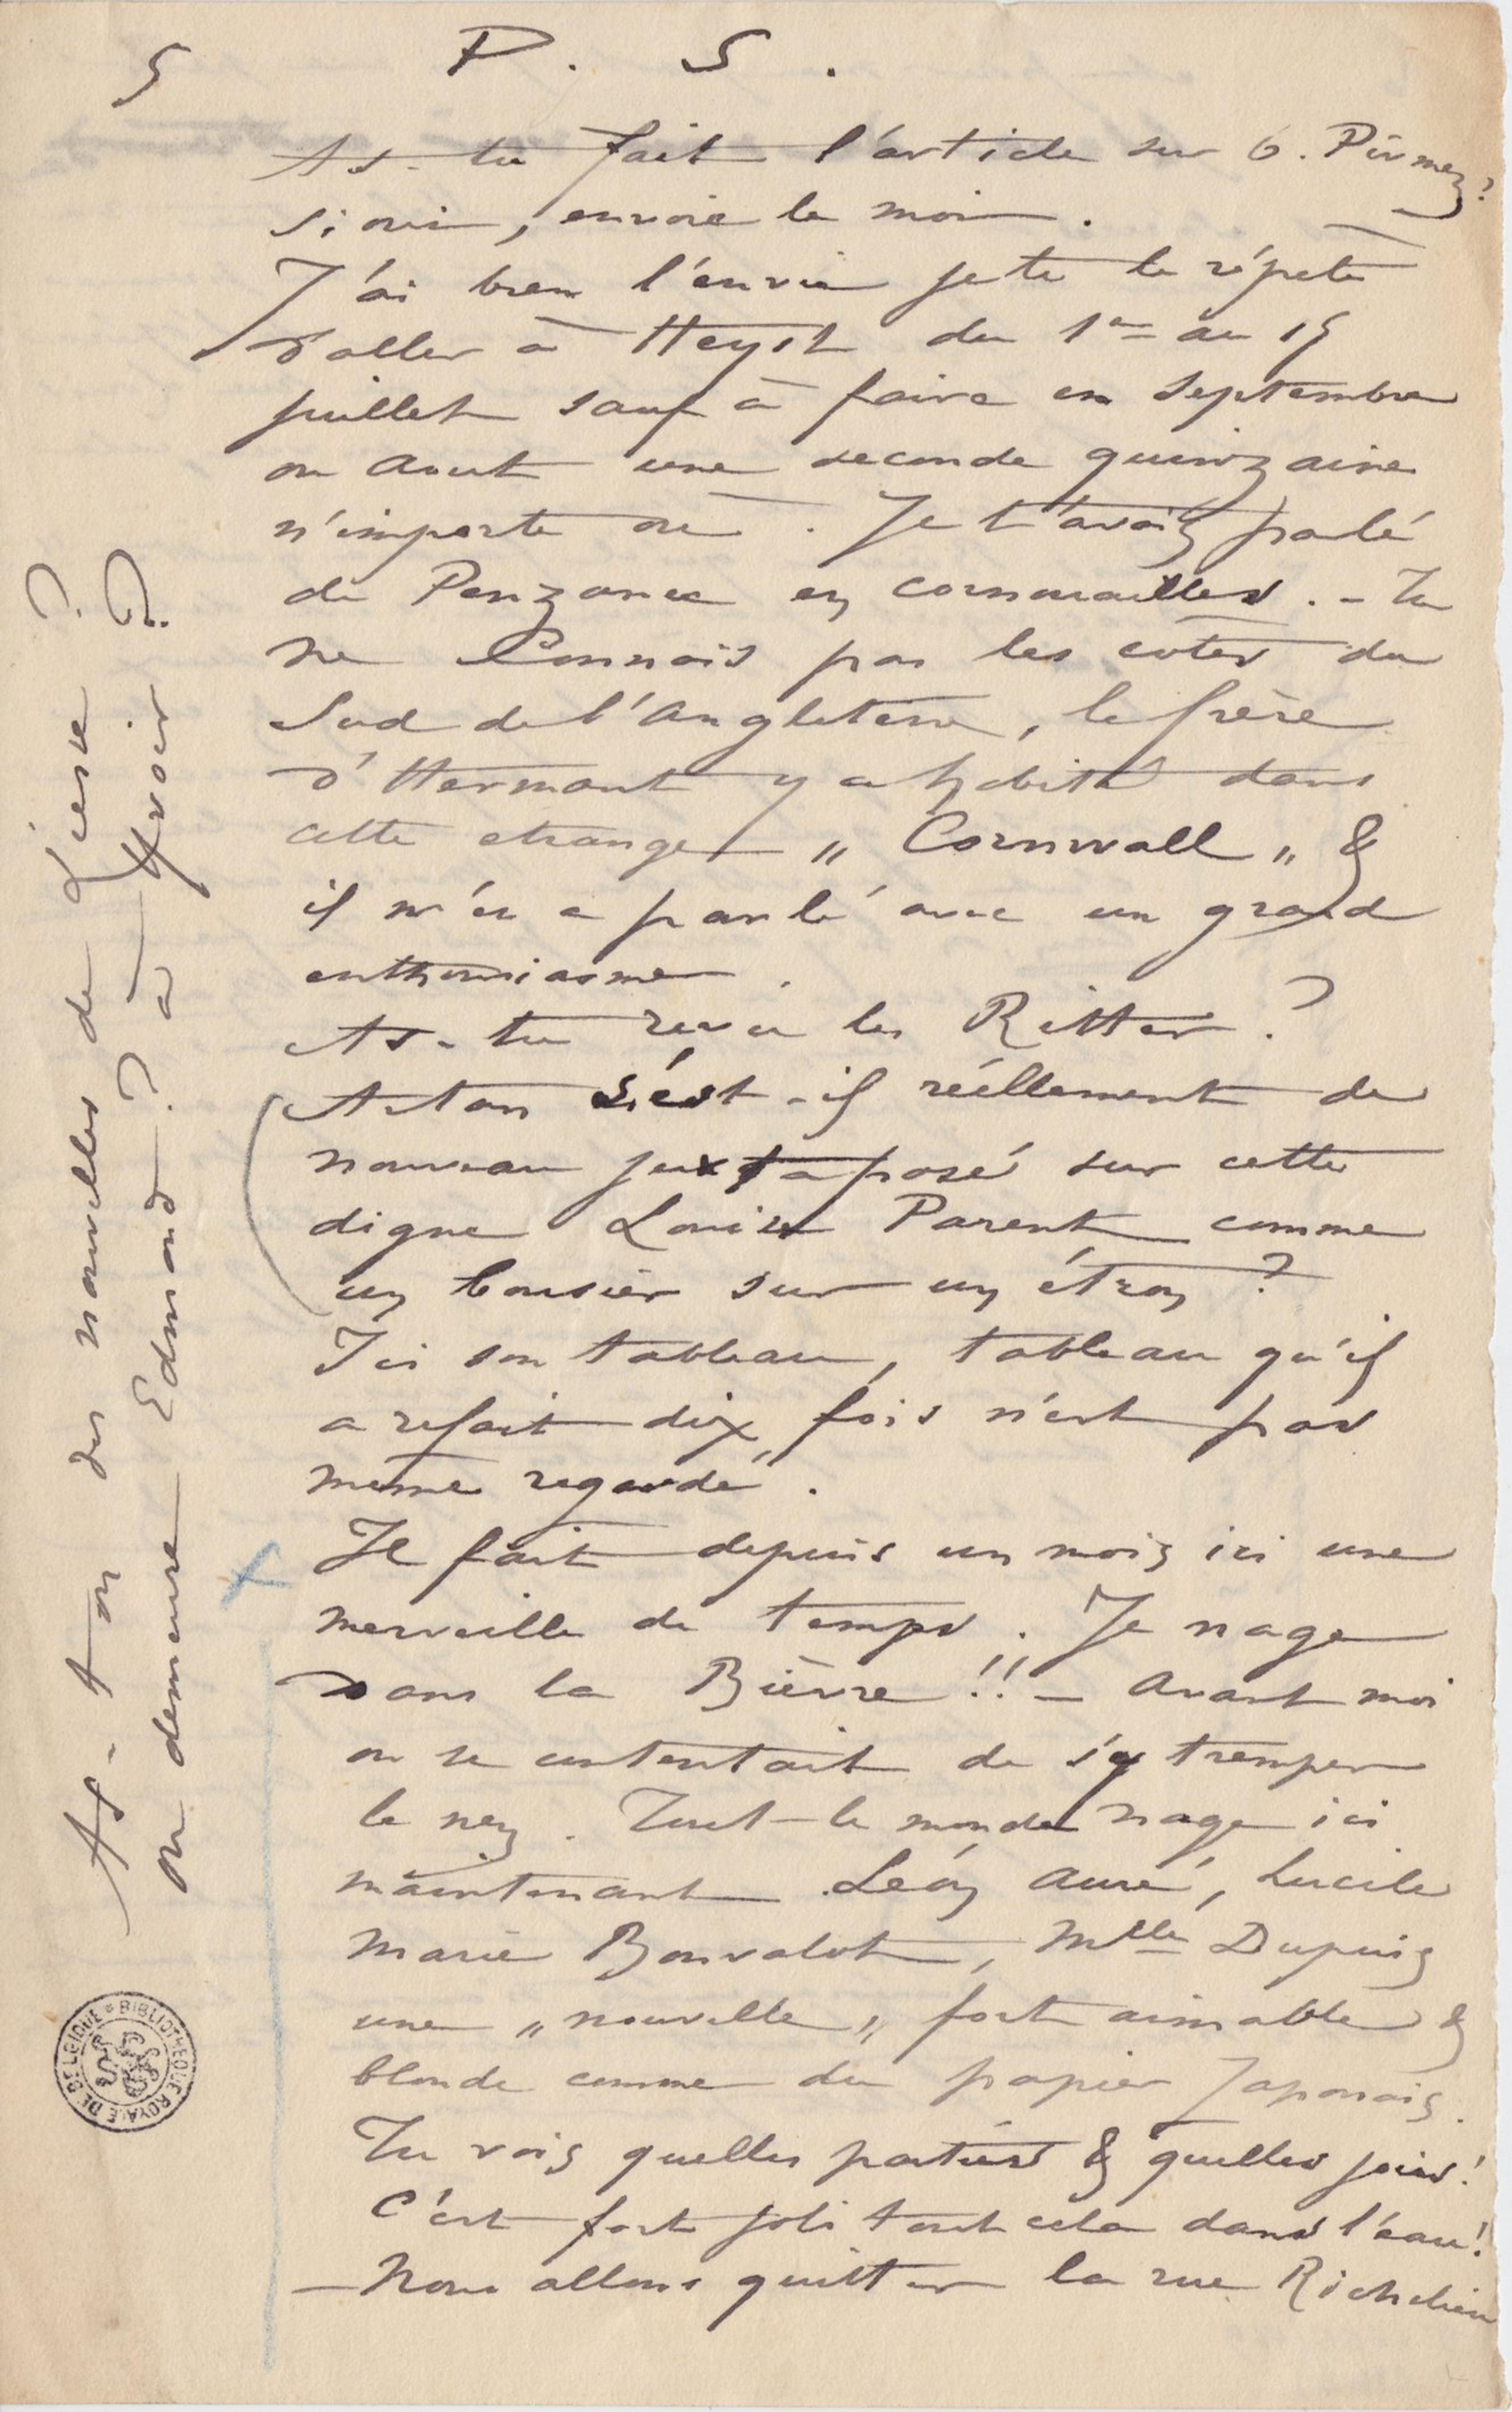 5
P. S.
As-tu fait l'article sur O. Pirmez?
si oui, envoie le moi.
J'ai bien l'envie je te le répète
d'aller à Heyst du 1er au 15
juillet sauf à faire en Septembre
ou Aout une seconde quinzaine
n'importe où. Je t'avais parlé
de Penzance en Cornouailles. - Tu
ne connais pas les côtes du
Sud de l'Angleterre, le frère
d'Hermant y a habité dans
cette etrange „ Cornwall „ &
il m'en a parlé avec un grand
enthousiasme.
As-tu revu les Ritter?
Artan s'est-il réellement de
nouveau juxtaposé sur cette
digne Louise Parent comme
un bousier sur un étron?
Ici son tableau, tableau qu'il
a refait dix fois n'est pas
même regardé.
Il fait depuis un mois ici une
merveille de temps. Je nage
dans la Bièvre!! - Avant moi
on se contentait de s'y tremper
le nez. Tout le monde nage ici
maintenant Léon, Auré, Lucile
Marie Bonvalot, Mlle Dupuis
une „ nouvelle „ fort aimable &
blonde comme du papier Japonais.
Tu vois quelles parties & quelles joies!
C'est fort joli tout cela dans l'eau!
- Nous allons quitter la rue Richelieu
As-t-on des nouvelles de Liesse?
Où demeure Edmond? à Yvoir?
BIBLIOTHEQUE ROYALE DE BELGIQUE